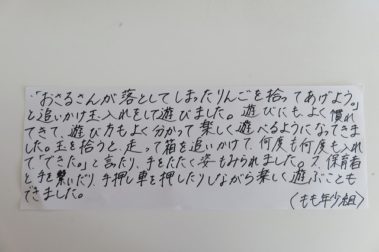 ・「おさるさんが落としてしまったりんごを拾ってあげよう。」
と追いかけ玉入れをして遊びました。遊びにも、よく慣れ
てきて、遊び方もよく分かって楽しく遊べるようになってきま
した。玉を拾うと、走って箱を追いかけて、何度も何度も入れ
て「できた。」と言たり、手をたたく姿もみられました。又、保育者
と手を繋いだり、手押し車を押したりしながら楽しく遊ぶことも
できました。
（もも年少組）